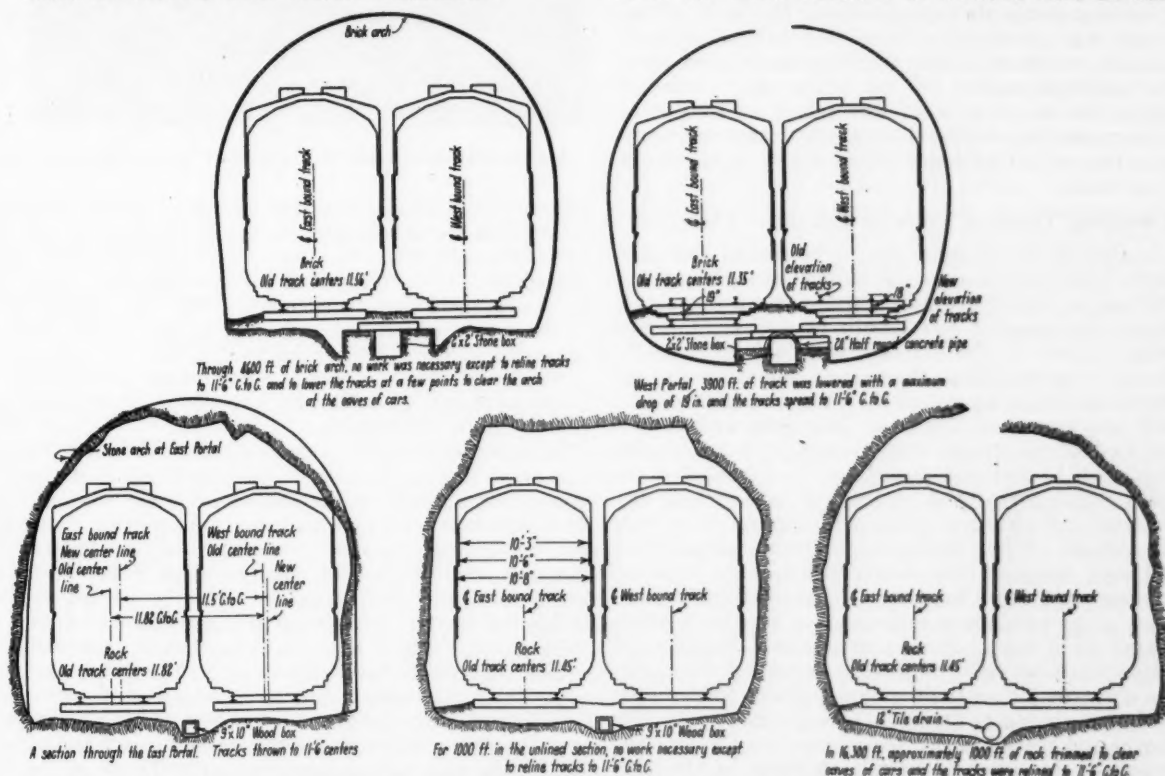 Brick arch
East bound track
West bound track
Brick
Old track centers 11.56'
2'x2' Stone box
Through 4600 ft. of brick arch, no work was necessary except to reline tracks
to 11'-6" C. to C. and to lower the tracks at a few points to clear the arch
at the eaves of cars.
East bound track
West bound track
Brick
Old track centers 11.35'
Old
elevation
of tracks
19"
18"
New
elevation
of tracks
2'x2' Stone box
Half round concrete pipe
West Portal, 3800 ft. of track was lowered with a maximum
drop of 19 in. and the tracks spread to 11'-6" C. to C.
Stone arch at East Portal
East bound track
New center line
Old center
line
West bound track
Old center line
New
center
line
11.5' C. to C.
11.82 C. to C.
Rock
Old track centers 11.82'
9"x10" Wood box
A section through the East Portal. Tracks thrown to 11'-6" centers
10'-3"
10'-6"
10'-8"
℄ East bound track
℄ West bound track
Rock
Old track centers 11.45'
9"x10" Wood box
For 1000 ft. in the unlined section, no work necessary except
to reline tracks to 11'-6" C. to C.
℄ East bound track
℄ West bound track
Rock
Old track centers 11.45'
18" Tile drain
In 16,300 ft., approximately 1000 ft. of rock trimmed to clear
eaves of cars and the tracks were relined to 11'-6" C. to C.